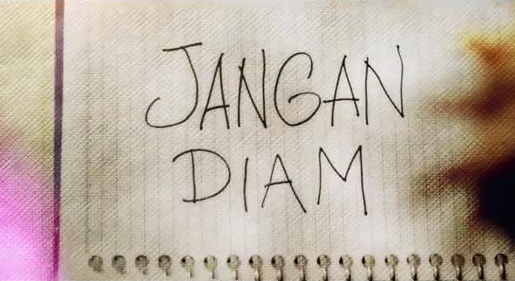 JANGAN
DIAM